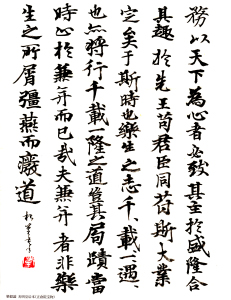 務以天下為心者必致其主於盛隆合
其趣於先王苟君臣同符斯大業
定矣于斯時也樂生之志千載一遇
也亦將行千載一隆之道豈其局蹟當
時止於兼并而已哉夫兼并者非樂
生之所屑彊燕而廢道